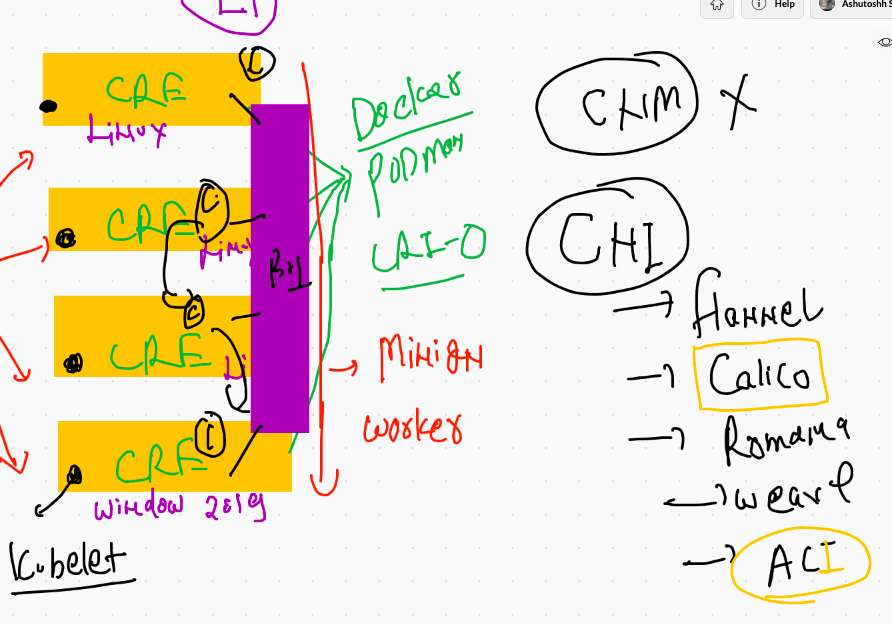 Help
Ashutoshh S
CRE
Linux
CRE
Linux
CRE
Li
CRE
window 2019
Kubelet
Docker
PODMan
CRI-O
Minion
worker
CNM X
CNI
flannel
Calico
Romana
ACI